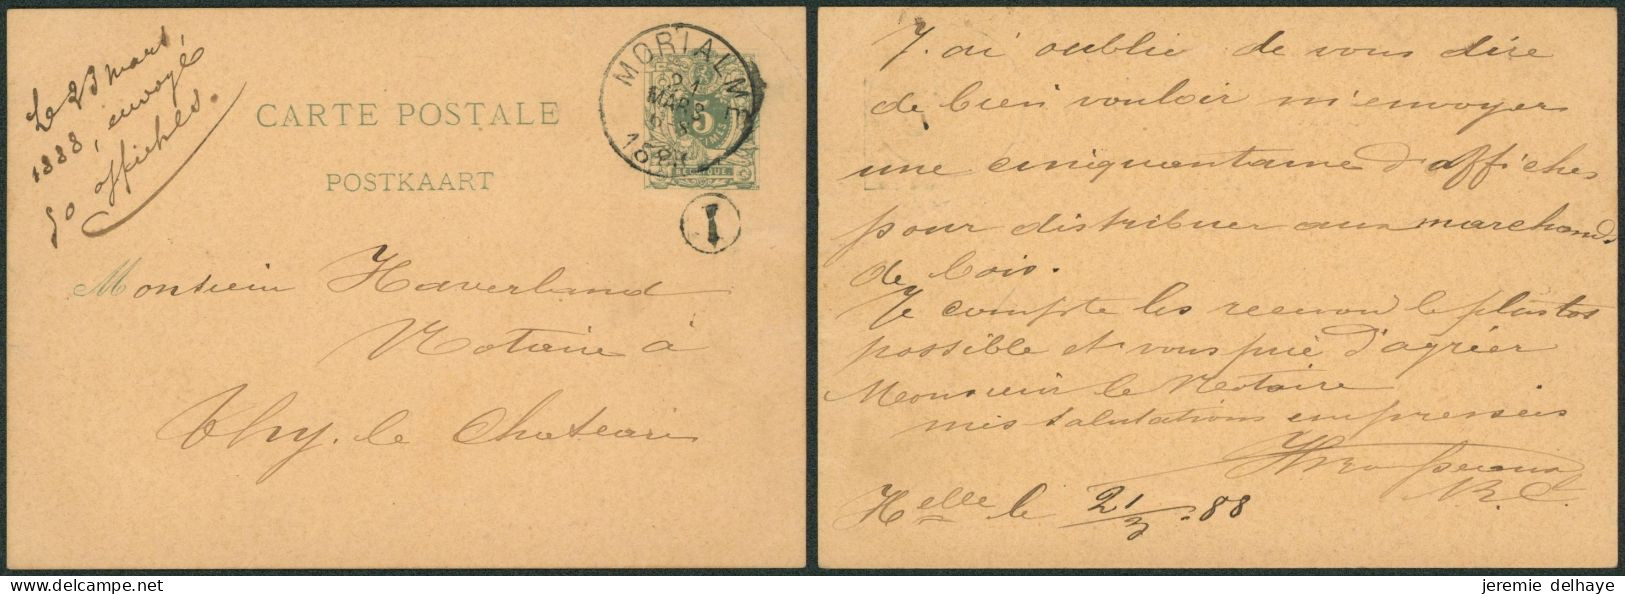 Le 23 mars,
1888, envoyé
50 affiches.
CARTE POSTALE
POSTKAART
MORIALMÉ
21
MARS
1888
5
CENTIMES
BELGIQUE
I
Monsieur Haverland
Notaire à
Thy-le-Chateau
J'ai oublié de vous dire
de bien vouloir m'envoyer
une cinquantaine d'affiches
pour distribuer aux marchands
de bois.
Je compte les recevoir le plus tot
possible et vous prie d'agréer
Monsieur le Notaire
mes salutations empressées
Hlle le 21/3 .88
jeremie delhaye